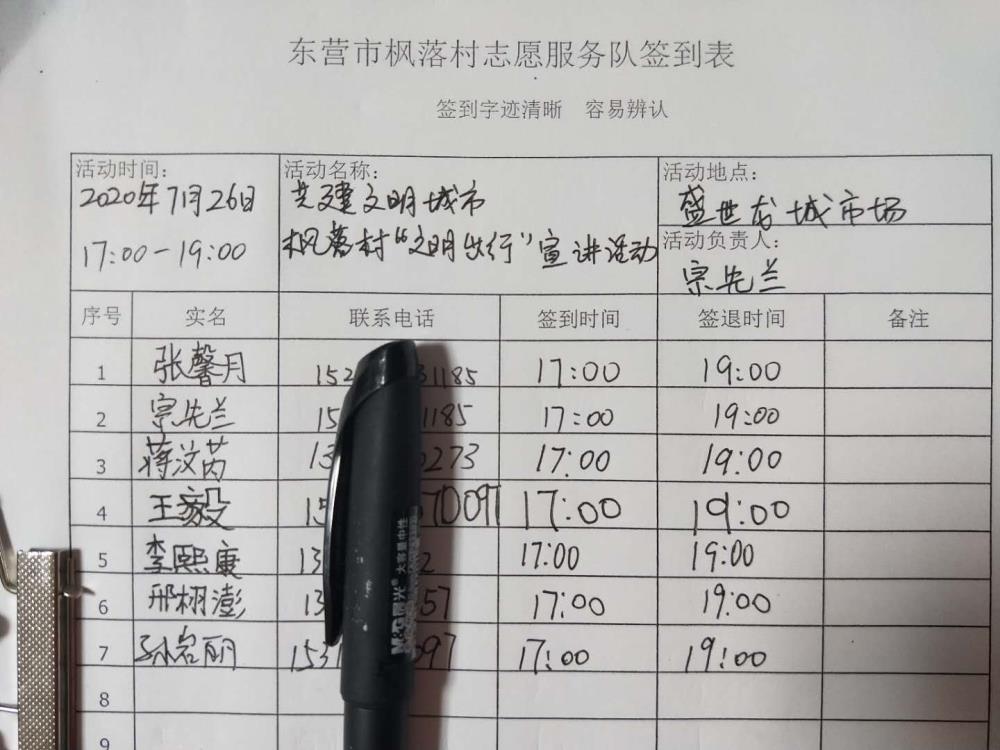 东营市枫落村志愿服务队签到表
签到字迹清晰 容易辨认
活动时间: 活动名称: 活动地点:
2020年7月26日 共建文明城市 盛世龙城市场
17:00-19:00 枫落村“文明出行”宣讲活动 活动负责人:
宗先兰
序号 实名 联系电话 签到时间 签退时间 备注
1 张馨月 152 31185 17:00 19:00
2 宗先兰 15 1185 17:00 19:00
3 蒋汶芮 13 0273 17:00 19:00
4 王毅 15 70097 17:00 19:00
5 李熙康 13 2 17:00 19:00
6 邢栩澎 13 57 17:00 19:00
7 孙岩丽 153 697 17:00 19:00
8
9
M&G晨光 大容量中性